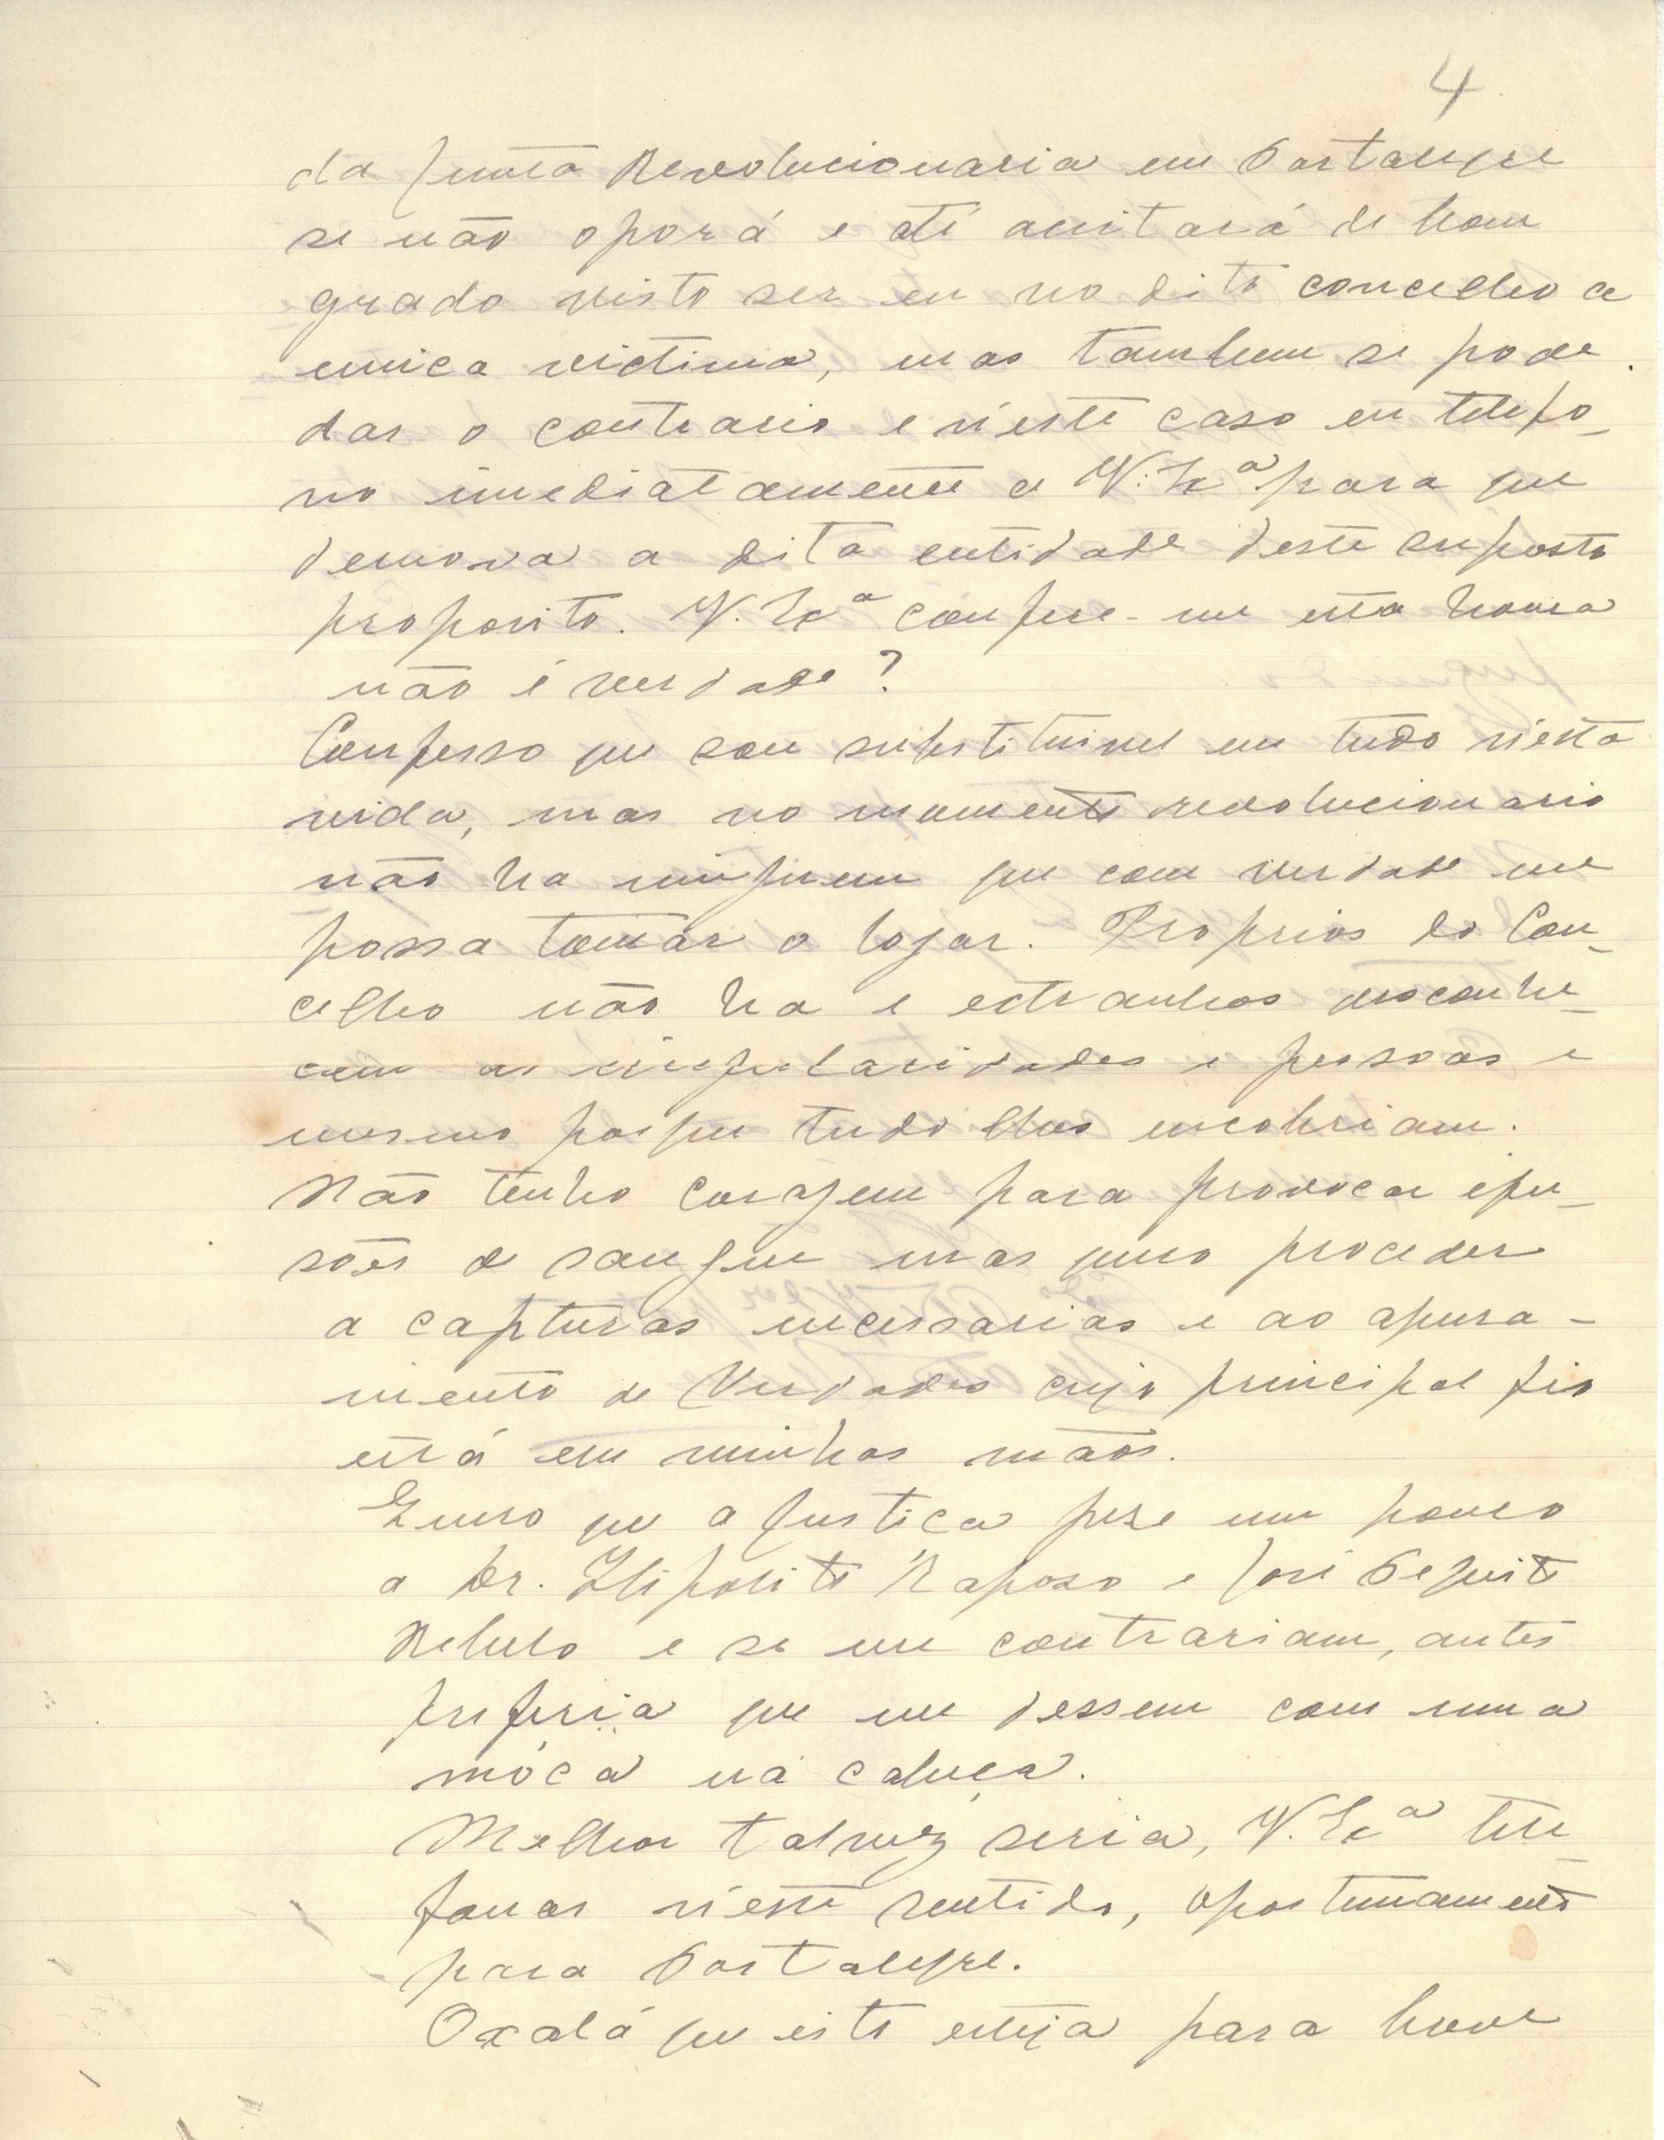 4
da Junta Revolucionaria em Portalegre
se não oporá e até aceitará de bom
grado visto ser eu no dito concelho a
unica victima, mas tambem se pode
dar o contrario e n'este caso eu telefo-
no imediatamente a V. Exª para que
demova a dita entidade deste suposto
proposito. V. Exª confere-me esta honra
não é verdade?
Confesso que sou substituivel em tudo n'esta
vida, mas no momento revolucionario
não ha ninguem que com verdade me
possa tomar o logar. Proprios do Con-
celho não ha e estranhos desconhe-
cem as irregularidades e pessoas e
mesmo porque tudo lhes encobriam.
Não tenho coragem para provocar efu-
sões de sangue mas quero proceder
a capturas necessarias e ao apura-
mento de Verdades cujo principal fio
está em minhas mãos.
Quero que a Justiça pese um pouco
a Dr. Hipolito Raposo e José Pequito
Rebelo e se me contrariam, antes
preferia que me dessem com uma
môca na cabeça.
Melhor talvez seria, V. Exª tele-
fonar n'este sentido, oportunamente
para Portalegre.
Oxalá que isto esteja para breve